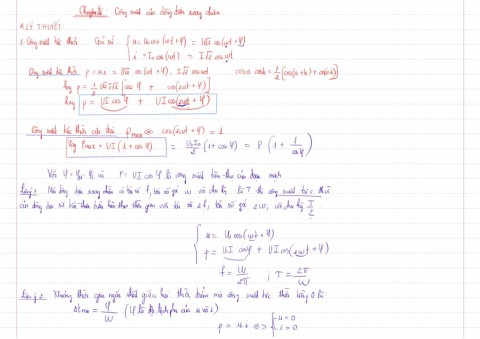 Chuyên đề: Công suất của dòng điện xoay chiều
A. LÝ THUYẾT
1. Công suất tức thời Giả sử: { u = U₀cos(ωt+φ) = U√2 cos(ωt+φ)
i = I₀cos(ωt) = I√2 cosωt
Công suất tức thời p = u.i = U√2 cos(ωt+φ). I√2 cosωt cosa cosb = 1/2 [cos(a+b) + cos(a-b)]
hay p = 1/2 U√2 I√2 [cosφ + cos(2ωt+φ)]
hay p = UI cosφ + UI cos(2ωt+φ)
Công suất tức thời cực đại: Pmax <=> cos(2ωt+φ) = 1
Vậy Pmax = UI(1+cosφ) = U₀I₀/2 (1+cosφ) = P(1 + 1/cosφ)
Với φ = φu - φi và P = UI cosφ là công suất tiêu thụ của đoạn mạch
Lưu ý 1: Nếu dòng điện xoay chiều có tần số f, tần số góc ω và chu kỳ là T thì công suất tức thời
của dòng điện sẽ biến thiên tuần hoàn theo thời gian với tần số 2f, tần số góc 2ω, và chu kỳ T/2
{ u = U₀cos(ωt+φ)
p = UI cosφ + UI cos(2ωt+φ)
f = ω/2π ; T = 2π/ω
Lưu ý 2: Khoảng thời gian ngắn nhất giữa hai thời điểm mà công suất tức thời bằng 0 là
Δtmin = φ/ω (φ là độ lệch pha của u và i)
p = u.i <=> { u = 0
i = 0